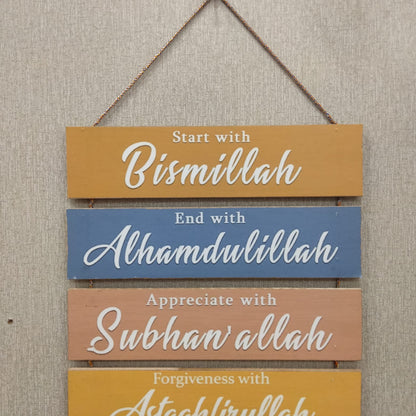 Start with
Bismillah
End with
Alhamdulillah
Appreciate with
Subhan'allah
Forgiveness with
Astaghfirullah